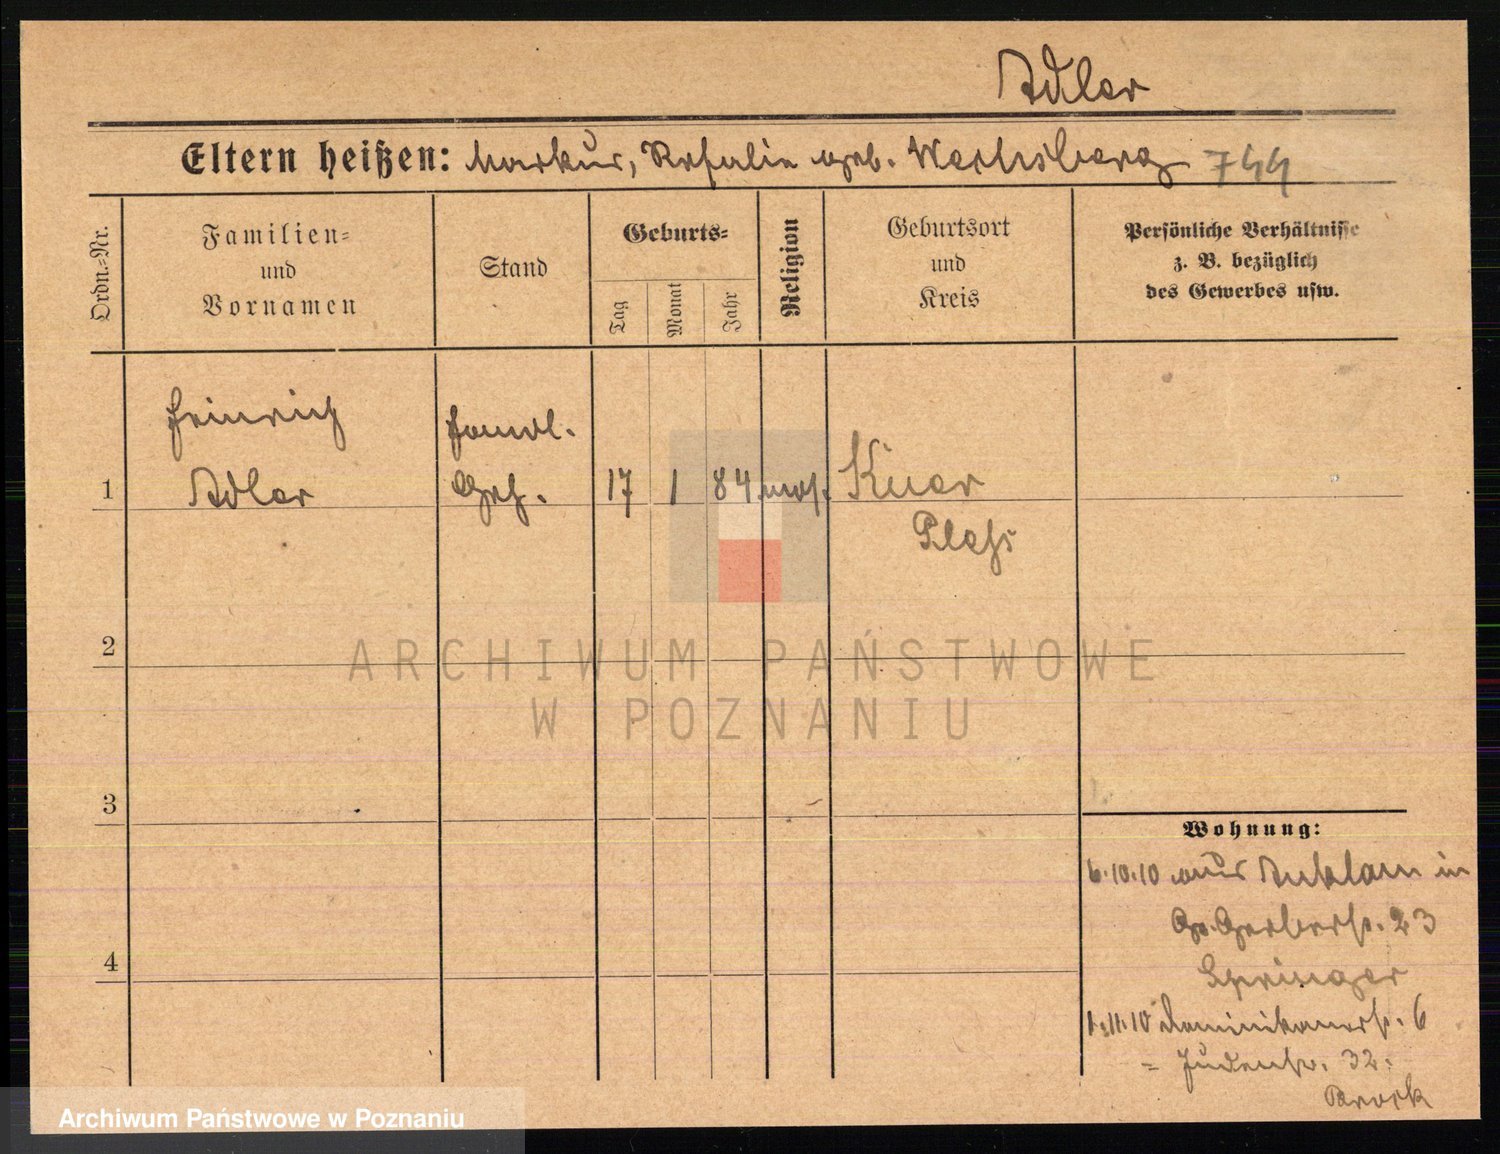 Adler
Eltern heißen: Markus, Rosalie geb. Wechsberg 744
Ordn.=Nr.
Familien=
und
Vornamen
Stand
Geburts=
Tag
Monat
Jahr
Religion
Geburtsort
und
Kreis
Persönliche Verhältnisse
z. B. bezüglich
des Gewerbes usw.
Heinrich
Handl.
1 Adler Geh. 17 1 84 mos.
Pleß
2
ARCHIWUM PAŃSTWOWE
W POZNANIU
3
Wohnung:
6.10.10 aus Anklam in
Gr. Gerberstr. 23
Springer
4
1.11.10 Dominikanerstr. 6
= Judenstr. 32.
Archiwum Państwowe w Poznaniu